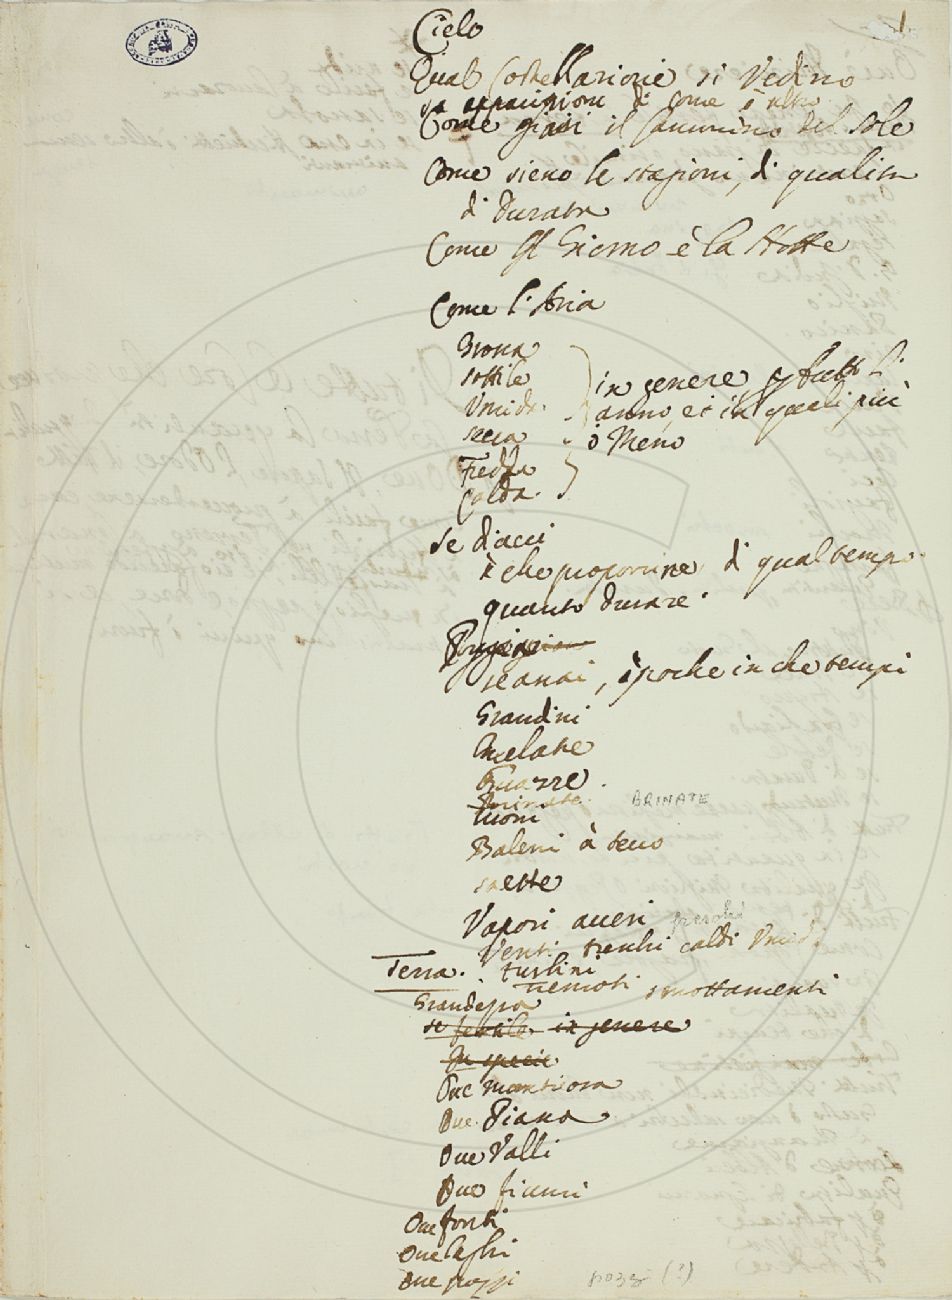 1
Cielo
Quali Costellazioni si Vedino
ed apparizioni di come ò altro
Come girasi il Cammino del sole
Come sieno le stagioni, di qualita
di Durata
Come Il Giorno è la Notte
Come l'Aria
Grossa
sottile
Umida
secca
Fredda
Calda
in genere p tutto l'
anno, et in quali più
ò Meno
se diacci
è che proporzione di qual tempo
quanto durare
Pioggie
se assai, ò poche in che tempi
Grandini
Melate
Guazze
Brinate BRINATE
tuoni
Baleni à secco
saette
Vapori accesi
Venti freschi caldi Umidi
turbini
Terra. tremoti smottamenti
Grandezza
se fertile in genere
In specie
Due montuosa
Due Piana
Due Valli
Due fiumi
Due fonti
Due laghi
Due pozzi pozzi (?)